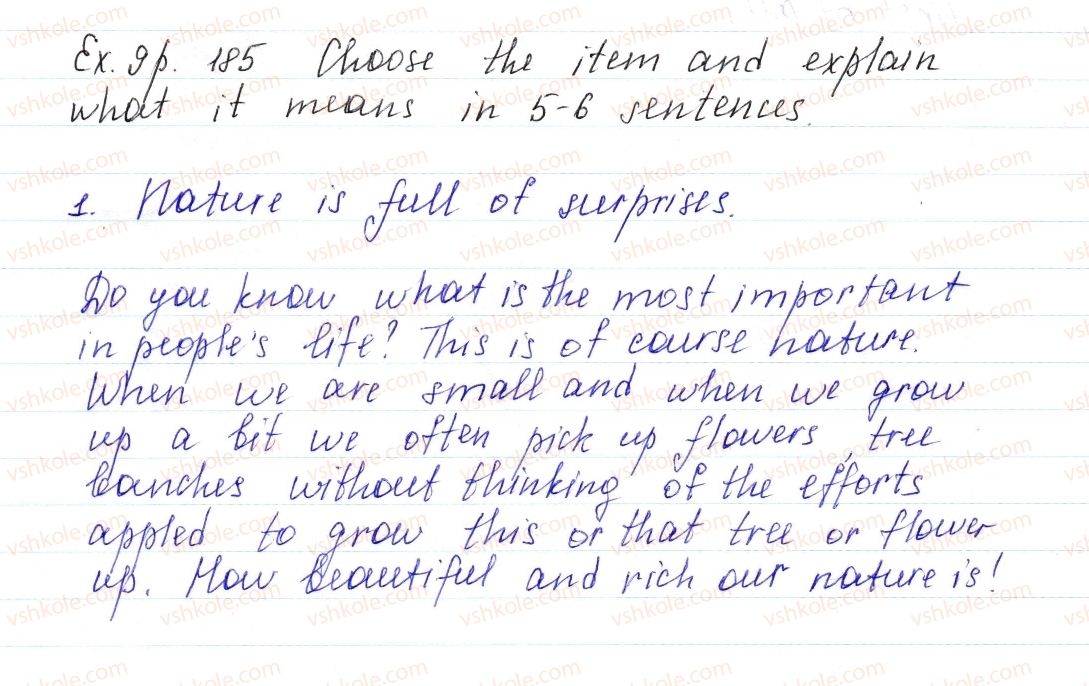 Ex. 9 p. 185 Choose the item and explain
what it means in 5-6 sentences.
1. Nature is full of surprises.
Do you know what is the most important
in people's life? This is of course nature.
When we are small and when we grow
up a bit we often pick up flowers, tree
banches without thinking of the efforts
appled to grow this or that tree or flower
up. How beautiful and rich our nature is!